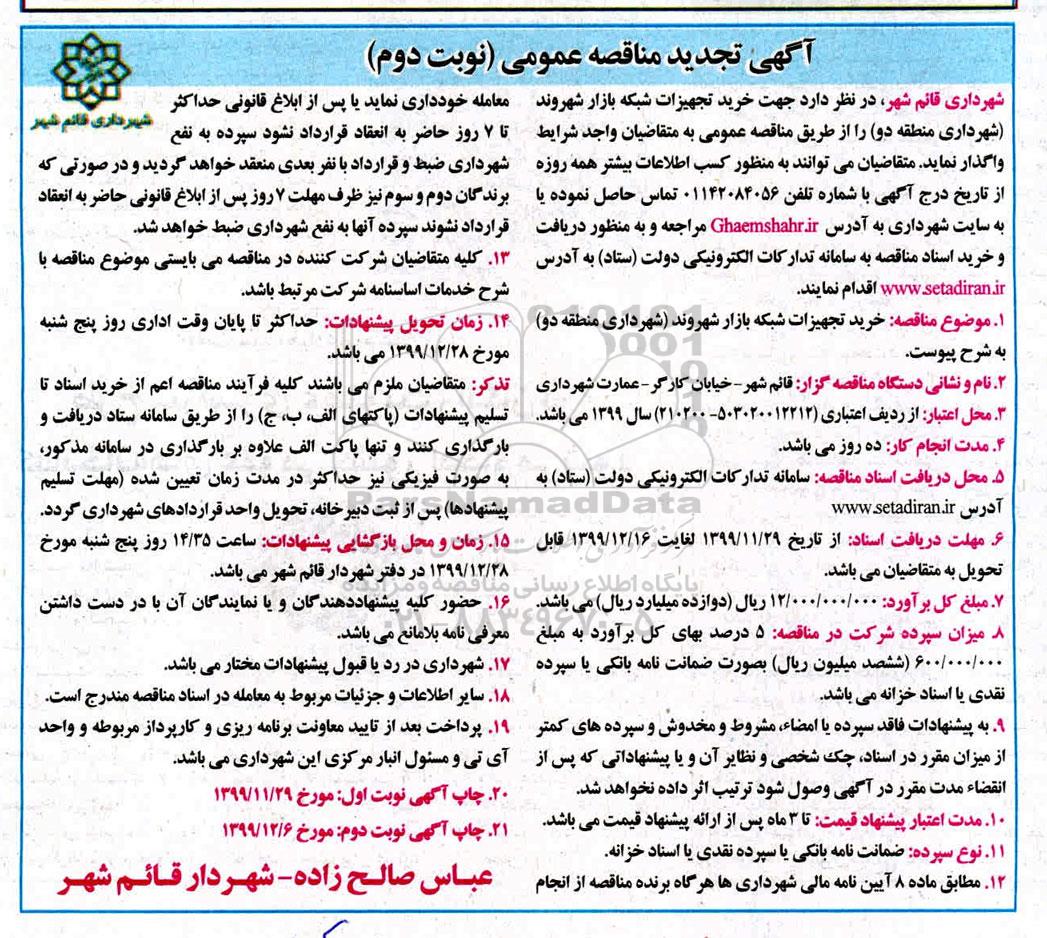 آگهی تجدید مناقصه عمومی (نوبت دوم)
شهرداری قائم شهر
شهرداری قائم شهر، در نظر دارد جهت خرید تجهیزات شبکه بازار شهروند
(شهرداری منطقه دو) را از طریق مناقصه عمومی به متقاضیان واجد شرایط
واگذار نماید. متقاضیان می توانند به منظور کسب اطلاعات بیشتر همه روزه
از تاریخ درج آگهی با شماره تلفن ۰۱۱۴۲۰۸۴۰۵۶ تماس حاصل نموده یا
به سایت شهرداری به آدرس Ghaemshahr.ir مراجعه و به منظور دریافت
و خرید اسناد مناقصه به سامانه تدارکات الکترونیکی دولت (ستاد) به آدرس
www.setadiran.ir اقدام نمایند.
۱. موضوع مناقصه: خرید تجهیزات شبکه بازار شهروند (شهرداری منطقه دو)
به شرح پیوست.
۲. نام و نشانی دستگاه مناقصه گزار: قائم شهر - خیابان کارگر - عمارت شهرداری
۳. محل اعتبار: از ردیف اعتباری (۵۰۳۰۲۰۰۱۲۲۱۲- ۲۱۰۲۰۰) سال ۱۳۹۹ می باشد.
۴. مدت انجام کار: ده روز می باشد.
۵. محل دریافت اسناد مناقصه: سامانه تدارکات الکترونیکی دولت (ستاد) به
آدرس www.setadiran.ir
۶. مهلت دریافت اسناد: از تاریخ ۱۳۹۹/۱۱/۲۹ لغایت ۱۳۹۹/۱۲/۱۶ قابل
تحویل به متقاضیان می باشد.
۷. مبلغ کل برآورد: ۱۲/۰۰۰/۰۰۰/۰۰۰ ریال (دوازده میلیارد ریال) می باشد.
۸. میزان سپرده شرکت در مناقصه: ۵ درصد بهای کل برآورد به مبلغ
۶۰۰/۰۰۰/۰۰۰ (ششصد میلیون ریال) بصورت ضمانت نامه بانکی یا سپرده
نقدی یا اسناد خزانه می باشد.
۹. به پیشنهادات فاقد سپرده یا امضاء، مشروط و مخدوش و سپرده های کمتر
از میزان مقرر در اسناد، چک شخصی و نظایر آن و یا پیشنهاداتی که پس از
انقضاء مدت مقرر در آگهی وصول شود ترتیب اثر داده نخواهد شد.
۱۰. مدت اعتبار پیشنهاد قیمت: تا ۳ ماه پس از ارائه پیشنهاد قیمت می باشد.
۱۱. نوع سپرده: ضمانت نامه بانکی یا سپرده نقدی یا اسناد خزانه.
۱۲. مطابق ماده ۸ آیین نامه مالی شهرداری ها هرگاه برنده مناقصه از انجام
معامله خودداری نماید یا پس از ابلاغ قانونی حداکثر
تا ۷ روز حاضر به انعقاد قرارداد نشود سپرده به نفع
شهرداری ضبط و قرارداد با نفر بعدی منعقد خواهد گردید و در صورتی که
برندگان دوم و سوم نیز ظرف مهلت ۷ روز پس از ابلاغ قانونی حاضر به انعقاد
قرارداد نشوند سپرده آنها به نفع شهرداری ضبط خواهد شد.
۱۳. کلیه متقاضیان شرکت کننده در مناقصه می بایستی موضوع مناقصه با
شرح خدمات اساسنامه شرکت مرتبط باشد.
۱۴. زمان تحویل پیشنهادات: حداکثر تا پایان وقت اداری روز پنج شنبه
مورخ ۱۳۹۹/۱۲/۲۸ می باشد.
تذکر: متقاضیان ملزم می باشند کلیه فرآیند مناقصه اعم از خرید اسناد تا
تسلیم پیشنهادات (پاکتهای الف، ب، ج) را از طریق سامانه ستاد دریافت و
بارگذاری کنند و تنها پاکت الف علاوه بر بارگذاری در سامانه مذکور،
به صورت فیزیکی نیز حداکثر در مدت زمان تعیین شده (مهلت تسلیم
پیشنهادها) پس از ثبت دبیرخانه، تحویل واحد قراردادهای شهرداری گردد.
۱۵. زمان و محل بازگشایی پیشنهادات: ساعت ۱۴/۳۵ روز پنج شنبه مورخ
۱۳۹۹/۱۲/۲۸ در دفتر شهردار قائم شهر می باشد.
۱۶. حضور کلیه پیشنهاددهندگان و یا نمایندگان آن با در دست داشتن
معرفی نامه بلامانع می باشد.
۱۷. شهرداری در رد یا قبول پیشنهادات مختار می باشد.
۱۸. سایر اطلاعات و جزئیات مربوط به معامله در اسناد مناقصه مندرج است.
۱۹. پرداخت بعد از تایید معاونت برنامه ریزی و کارپرداز مربوطه و واحد
آی تی و مسئول انبار مرکزی این شهرداری می باشد.
۲۰. چاپ آگهی نوبت اول: مورخ ۱۳۹۹/۱۱/۲۹
۲۱. چاپ آگهی نوبت دوم: مورخ ۱۳۹۹/۱۲/۶
عباس صالح زاده - شهردار قائم شهر
ParsNamadData
پایگاه اطلاع رسانی مناقصه و مزایده
۰۲۱-۸۸۳۴۹۶۷۰-۵